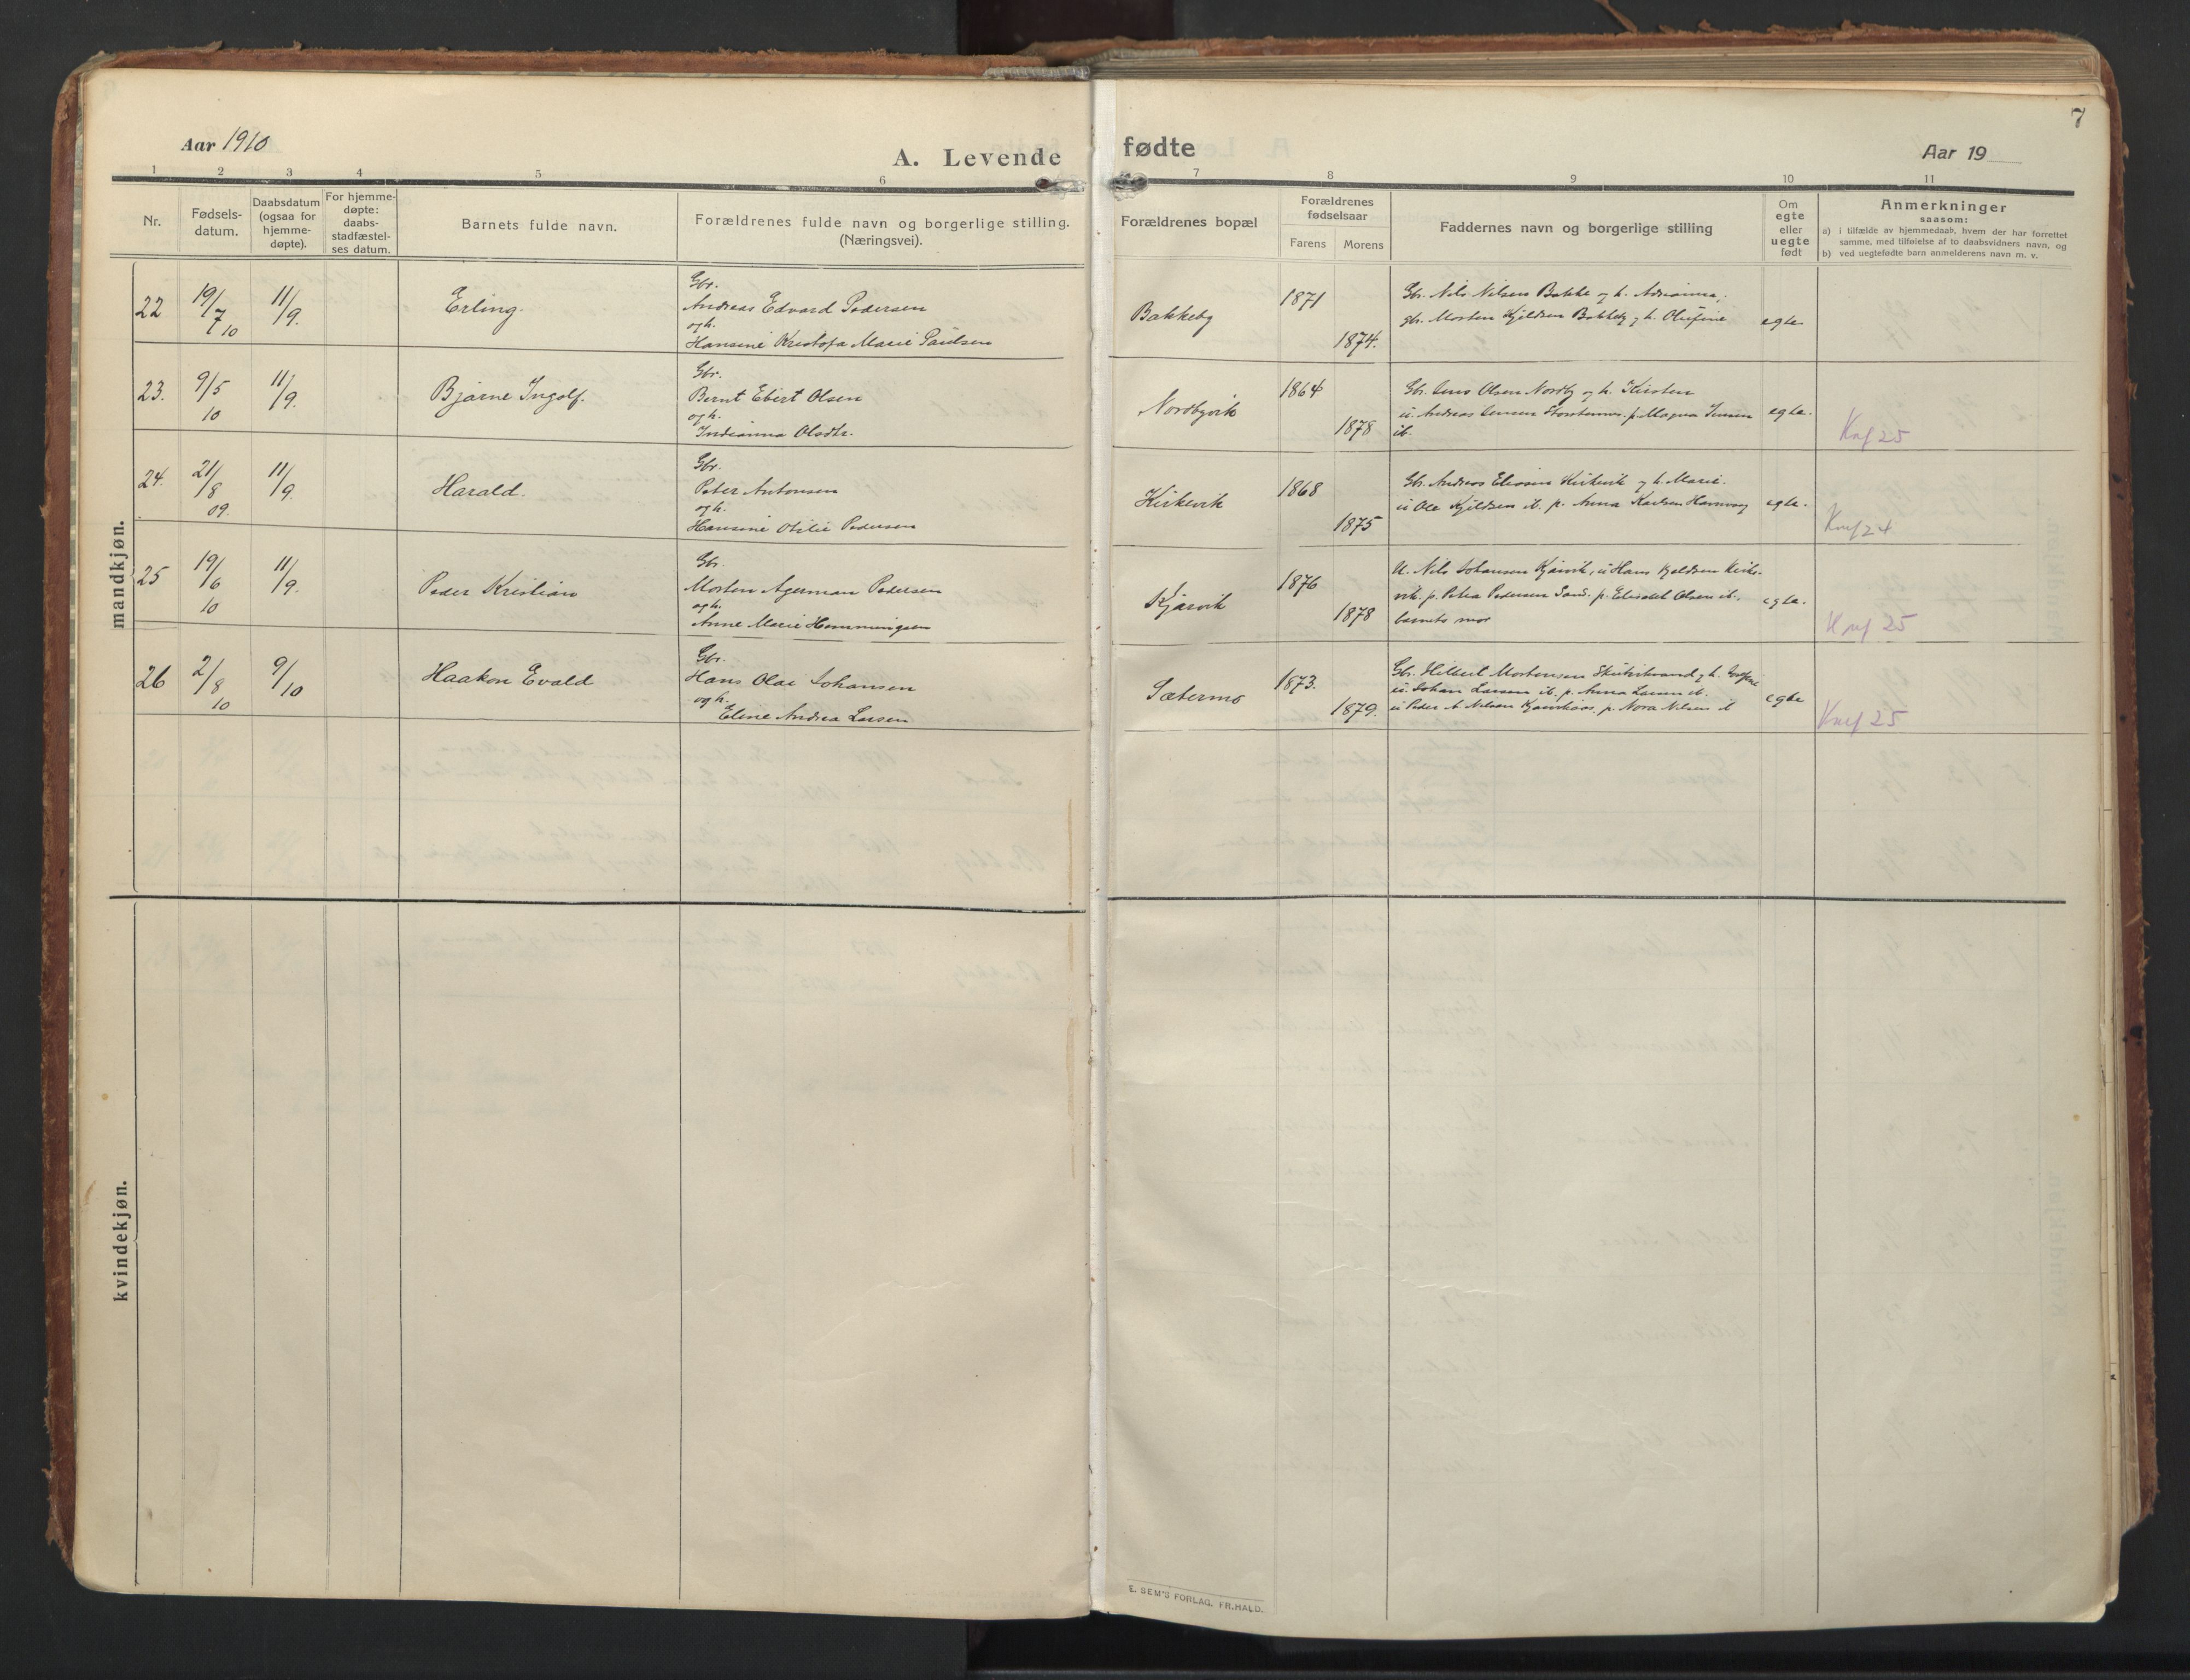 7
Aar 1910
A. Levende fødte
Aar 19
1 2 3 4 5 6 7 8 9 10 11
Nr.
Fødsels-
datum.
Daabsdatum
(ogsaa for
hjemme-
døpte).
For hjemme-
døpte:
daabs-
stadfæstel-
ses datum.
Barnets fulde navn.
Forældrenes fulde navn og borgerlige stilling.
(Næringsvei).
Forældrenes bopæl
Forældrenes
fødselsaar
Farens Morens
Faddernes navn og borgerlige stilling
Om
egte
eller
uegte
født
Anmerkninger
saasom:
a) i tilfælde av hjemmedaab, hvem der har forrettet
samme, med tilføielse af to daabsvidners navn, og
b) ved uegtefødte barn anmelderens navn m. v.
mandkjøn.
22
19/7 10
11/9.
Erling.
Gbr.
Andreas Edvard Pedersen
og h.
Hansine Kristofa Marie Paulsen
Bakkeby
1871
1874.
Gbr. Nils Nilsen Bakke og h. Adrianna,
gbr. Morten Kjeldsen Bakkeby og h. Olufine
egte.
23.
9/5
10
11/9.
Bjarne Ingolf.
Gbr.
Bernt Ebert Olsen
og h.
Indianna Olsdtr.
Nordbyvik
1864
1878
Gbr. Jens Olsen Nordby og h. Kirsten
u. Andreas Jensen p. Magna Jensen
ib.
egte.
Knf 25
24.
21/8
09.
11/9.
Harald.
Gbr.
Peter Antonsen
og h.
Hansine Otilie Pedersen
Kirkevik
1868
1875
Gbr. Andreas Eliasen Kirkevik og h. Marie.
u Ole Kjeldsen ib. p. Anna Karlsen
egte.
Knf 24
25
19/6
10
11/9.
Peder Kristian
Gbr.
Morten Agerman Pedersen
og h.
Anne Marie Hemmingsen
Kjærvik
1876
1878
U. Nils Johansen Kjærvik, u Hans Kjeldsen Kirke-
vik. p. Petra Pedersen Sand. p. Elisabet Olsen ib.
barnets mor
egte.
Knf 25
26
2/8
10
9/10
Haakon Evald
Gbr.
Hans Olai Johansen
og h.
Eline Andrea Larsen
Sætermo
1873.
1879.
Gbr. Hilbert Mortensen og h.
u. Johan Larsen ib. p. Anna Larsen ib.
u Peder A Nilsen p. Nora Nilsen ib
egte
Knf 25
kvindekjøn.
E. SEM'S FORLAG. FR.HALD.